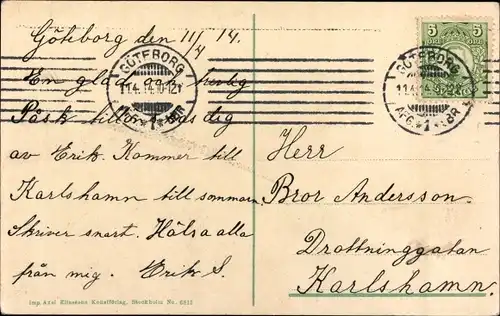 Göteborg den 11/4 14.
En glad och trevlig
Påsk tillönskas dig
av Erik. Kommer till
Karlshamn till sommaren
Skriver snart. Hälsa alla
från mig. Erik S.
Imp. Axel Eliassons Konstförlag, Stockholm No. 6813
5 5
GÖTEBORG
11.4.14.10-12F
AFG. 1 BR
GÖTEBORG
11.4.14
AFG. 1 BR
Herr
Bror Andersson.
Drottninggatan
Karlshamn.